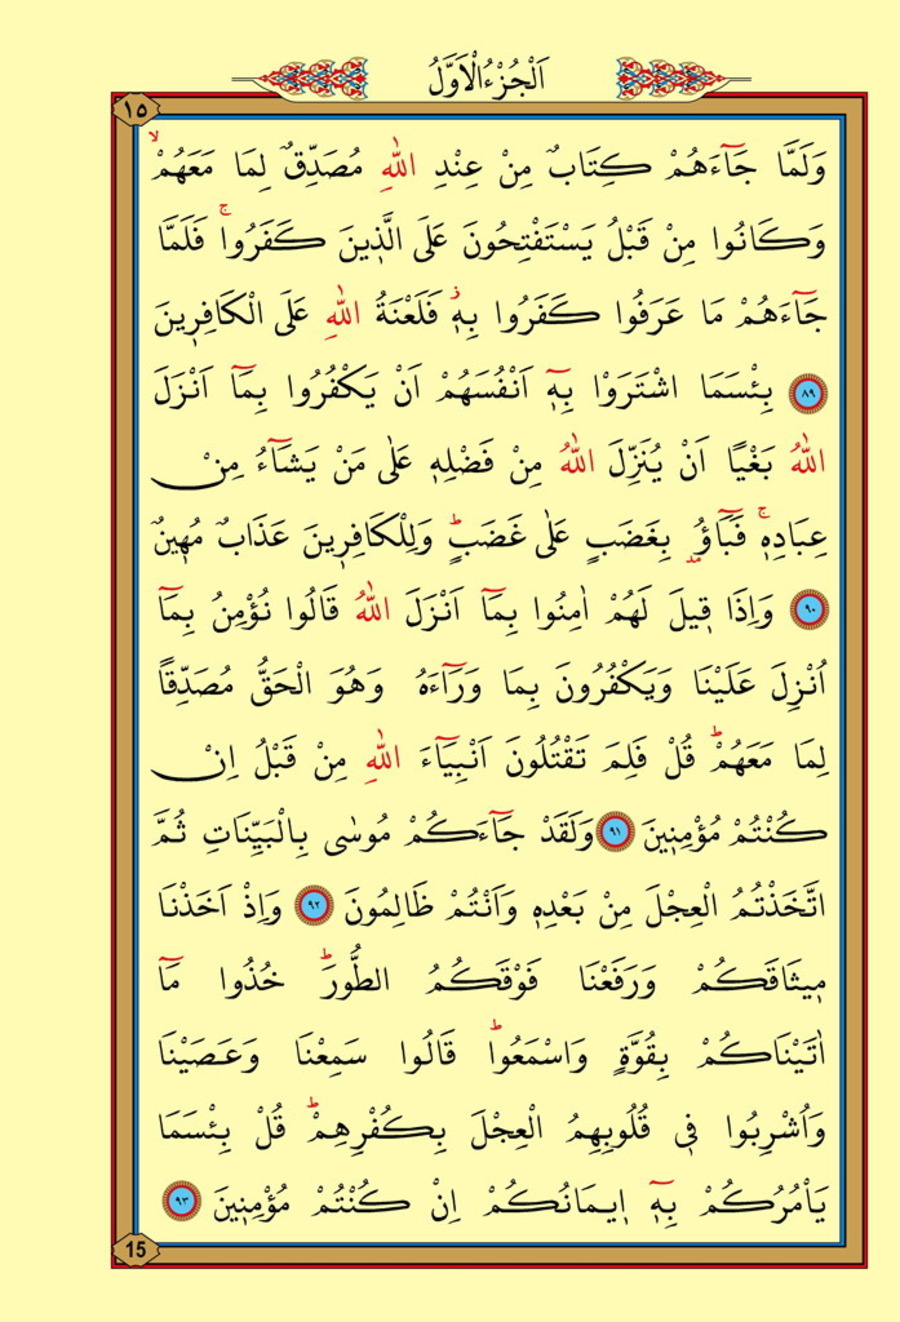 اَلْجُزْءُ الْاَوَّلُ
١٥
وَلَمَّا جَٓاءَهُمْ كِتَابٌ مِنْ عِنْدِ اللّٰهِ مُصَدِّقٌ لِمَا مَعَهُمْۙ
وَكَانُوا مِنْ قَبْلُ يَسْتَفْتِحُونَ عَلَى الَّذ۪ينَ كَفَرُواۚ فَلَمَّا
جَٓاءَهُمْ مَا عَرَفُوا كَفَرُوا بِه۪ۘ فَلَعْنَةُ اللّٰهِ عَلَى الْكَافِر۪ينَ
﴿٨٩﴾ بِئْسَمَا اشْتَرَوْا بِه۪ٓ اَنْفُسَهُمْ اَنْ يَكْفُرُوا بِمَٓا اَنْزَلَ
اللّٰهُ بَغْيًا اَنْ يُنَزِّلَ اللّٰهُ مِنْ فَضْلِه۪ عَلٰى مَنْ يَشَٓاءُ مِنْ
عِبَادِه۪ۚ فَبَٓاؤُ بِغَضَبٍ عَلٰى غَضَبٍۜ وَلِلْكَافِر۪ينَ عَذَابٌ مُه۪ينٌ
﴿٩٠﴾ وَاِذَا ق۪يلَ لَهُمْ اٰمِنُوا بِمَٓا اَنْزَلَ اللّٰهُ قَالُوا نُؤْمِنُ بِمَٓا
اُنْزِلَ عَلَيْنَا وَيَكْفُرُونَ بِمَا وَرَٓاءَهُ وَهُوَ الْحَقُّ مُصَدِّقًا
لِمَا مَعَهُمْۜ قُلْ فَلِمَ تَقْتُلُونَ اَنْبِيَٓاءَ اللّٰهِ مِنْ قَبْلُ اِنْ
كُنْتُمْ مُؤْمِن۪ينَ ﴿٩١﴾ وَلَقَدْ جَٓاءَكُمْ مُوسٰى بِالْبَيِّنَاتِ ثُمَّ
اتَّخَذْتُمُ الْعِجْلَ مِنْ بَعْدِه۪ وَاَنْتُمْ ظَالِمُونَ ﴿٩٢﴾ وَاِذْ اَخَذْنَا
م۪يثَاقَكُمْ وَرَفَعْنَا فَوْقَكُمُ الطُّورَۜ خُذُوا مَٓا
اٰتَيْنَاكُمْ بِقُوَّةٍ وَاسْمَعُواۜ قَالُوا سَمِعْنَا وَعَصَيْنَا
وَاُشْرِبُوا ف۪ي قُلُوبِهِمُ الْعِجْلَ بِكُفْرِهِمْۜ قُلْ بِئْسَمَا
يَأْمُرُكُمْ بِه۪ٓ ا۪يمَانُكُمْ اِنْ كُنْتُمْ مُؤْمِن۪ينَ ﴿٩٣﴾
15